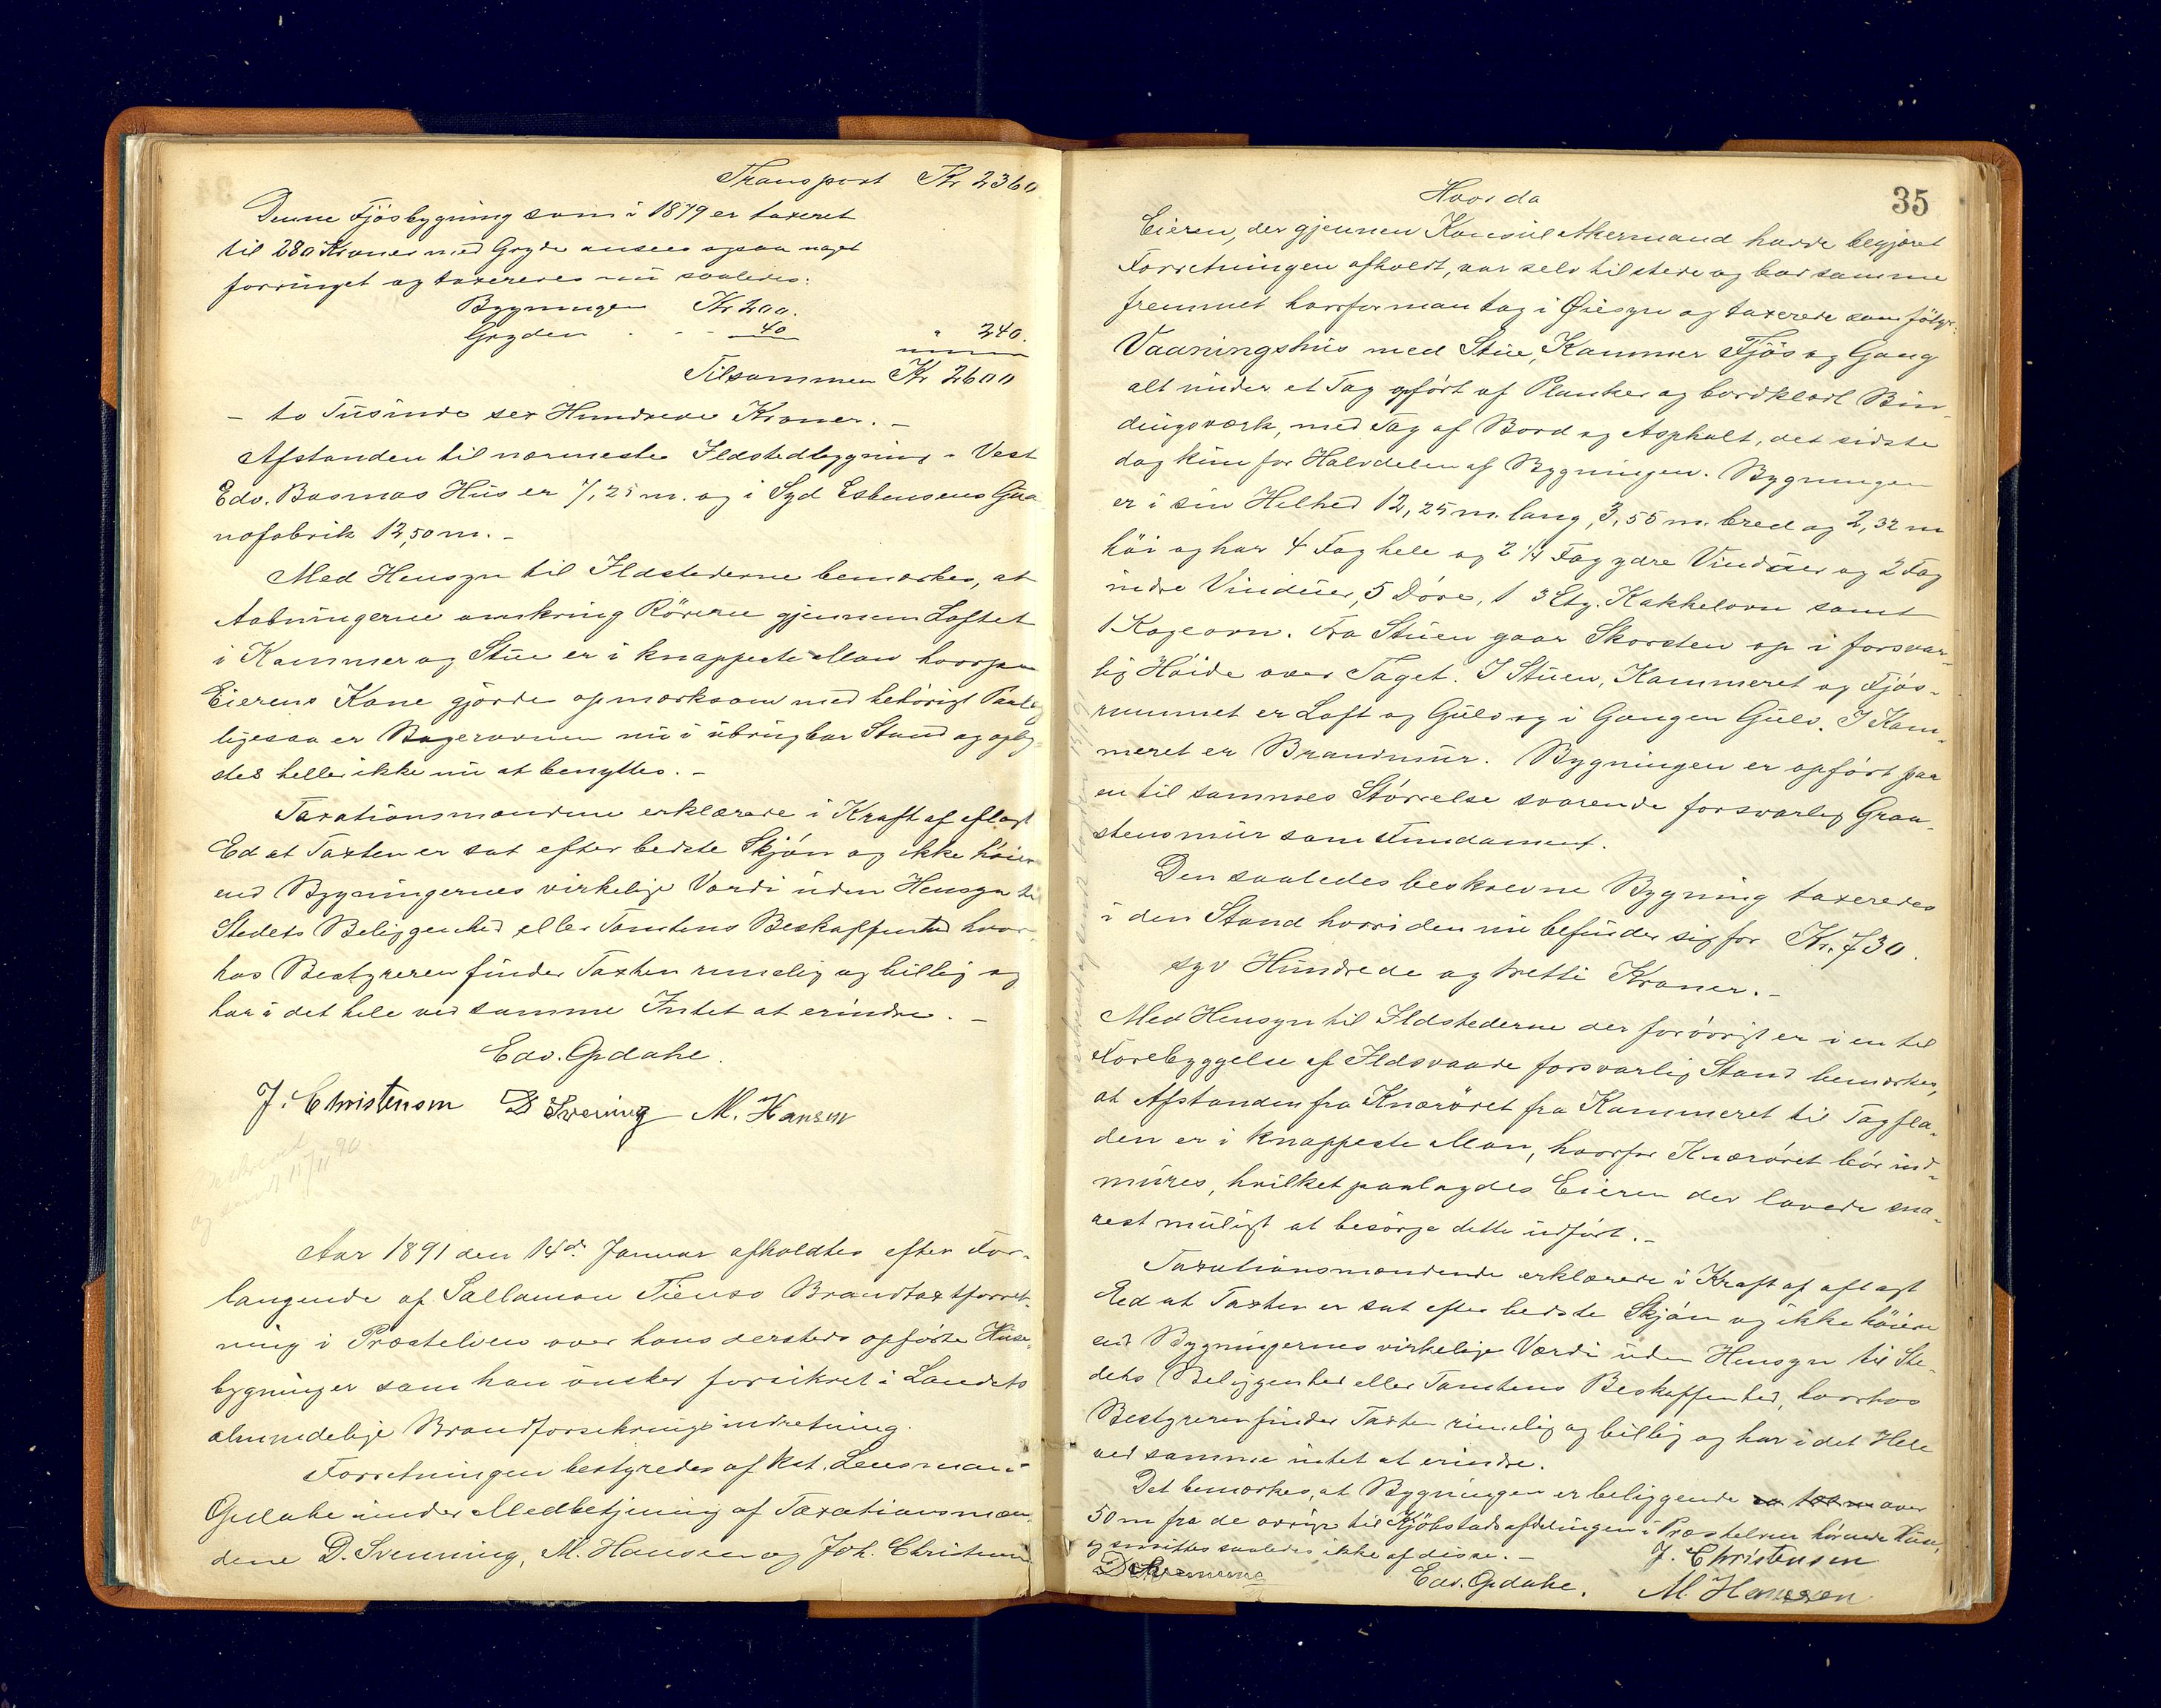 Transport Kr 2360
Denne Fjösbygning som i 1879 er taxeret
til 280 Kroner med Gryde ansees ogsaa noget
forringet og taxeredes nu saaledes:
Bygningen Kr 200.
Gryden - - 40 " 240.
Tilsammen Kr 2600
- to Tusinde sex Hundrede Kroner. -
Afstanden til nærmeste Ildstedbygning - Vest
Edv. Basmas Hus er 7,25 m. og i Syd Esbensens Gua
nofabrik 12,50 m. -
Med Hensyn til Ildstederne bemærkes, at
Aabningerne omkring Rörene gjennem Loftet
i Kammer og Stue er i knappeste Maal hvorpaa
Eierens Kone gjorde opmærksom med behörigt Paalæg
ligesaa er Bagerovnen nu i ubrugbar Stand og
heller ikke nu at benyttes. -
Taxationsmændene erklærede i Kraft af aflagt
Ed at Taxten er sat efter bedste Skjön og ikke höiere
end Bygningernes virkelige Værdi uden Hensyn til
Stedets Beliggenhed eller Tomtens Beskaffenhed hvor-
hos Bestyreren finder Taxten rimelig og billig og
har i det hele ved samme Intet at erindre. -
Edv. Opdahl.
J. Christensen D Svening M. Hansen
og sendt 15/11 90.
Aar 1891 den 14d. Januar afholdtes efter For-
langende af Sallamon Tienso Brandtaxtforret-
ning i Præstelven over hans dersteds opförte Huse-
bygninger som han önsker forsikret i Landets
almindelige Brandforsikringsindretning.
Forretningen bestyredes af kst. Lensmand
Opdahl under Medbetjening af Taxationsmæn-
dene D. Svenning, M. Hansen og Joh. Christensen
35
Hvorda
Eieren, der gjennem Konsul Akermand havde begjæret
Forretningen afholdt, var selv tilstede og bad samme
fremmet hvorfor man tog i Öiesyn og taxerede som fölger:
Vaaningshus med Stue, Kammer Fjös og Gang
alt under et Tag opfört af Planker og bordklædt Bin-
dingsværk, med Tag af Bord og Asphalt, det sidste
dog kun for Halvdelen af Bygningen. Bygningen
er i sin Helhed 12,25 m. lang, 3,55 m. bred og 2,32 m
höi og har 4 Fag hele og 2 1/2 Fag ydre Vinduer og 2 Fag
indre Vinduer, 5 Döre, 1 3 Etg. Kakkelovn samt
1 Kogeovn. Fra Stuen gaar Skorsten op i forsvar-
lig Höide over Taget. I Stuen, Kammeret og Fjös-
rummet er Loft og Gulv og i Gangen Gulv. I Kam-
meret er Brandmur. Bygningen er opfört paa
en til sammes Störrelse svarende forsvarlig Graa-
stensmur som Fundament.
Den saaledes beskrevne Bygning taxeredes
i den Stand hvori den nu befinder sig for Kr. 730.
syv Hundrede og tretti Kroner. -
Med Hensyn til Ildstederne der forövrigt er i en til
Forebyggelse af Ildsvaade forsvarlig Stand bemærkes,
at Afstanden fra Knæröret fra Kammeret til Tagfla-
den er i knappeste Maal, hvorfor Knæröret bör ind-
mures, hvilket paalagdes Eieren der lovede sna-
rest muligt at besörge dette udfört. -
Taxationsmændende erklærede i Kraft af aflagt
Eed at Taxten er sat efter bedste Skjön og ikke höiere
end Bygningernes virkelige Værdi uden Hensyn til Ste-
dets Beliggenhed eller Tomtens Beskaffenhed, hvorhos
Bestyreren finder Taxten rimelig og billig og har i det Hele
ved samme intet at erindre.
Det bemærkes, at Bygningen er beliggende over
50 m fra de övrige til Kjöbstadsafdelingen i Præstelven hörende Huse,
og smittes saaledes ikke af disse. -
J. Christensen
D Svenning Edv. Opdahl. M. Hanssen